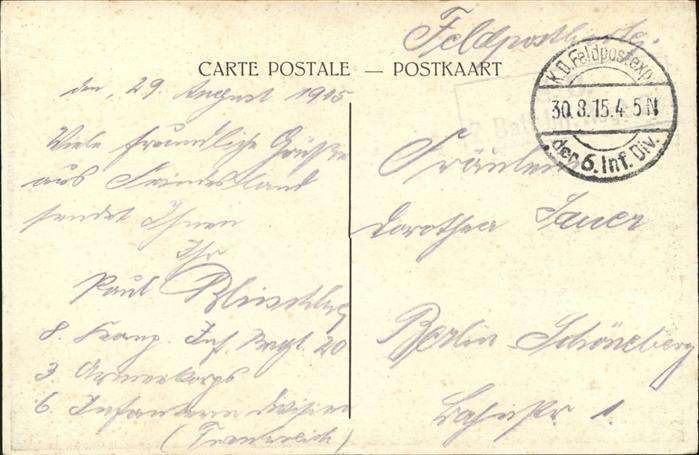 Feldpostkarte.
CARTE POSTALE — POSTKAART
K.D.Feldpostexp.
30.8.15.4-5N
der 6. Inf. Div.
den, 29. August 1915
Viele freundliche Grüße
aus Feindesland
sendet Ihnen
Ihr
Paul
8. Komp. Inf. Regt. 20
3. Armeekorps
6. Infanterie Division
(Frankreich)
Fräulein
Dorothea Sauer
Berlin-Schöneberg
Bahnstr 1.